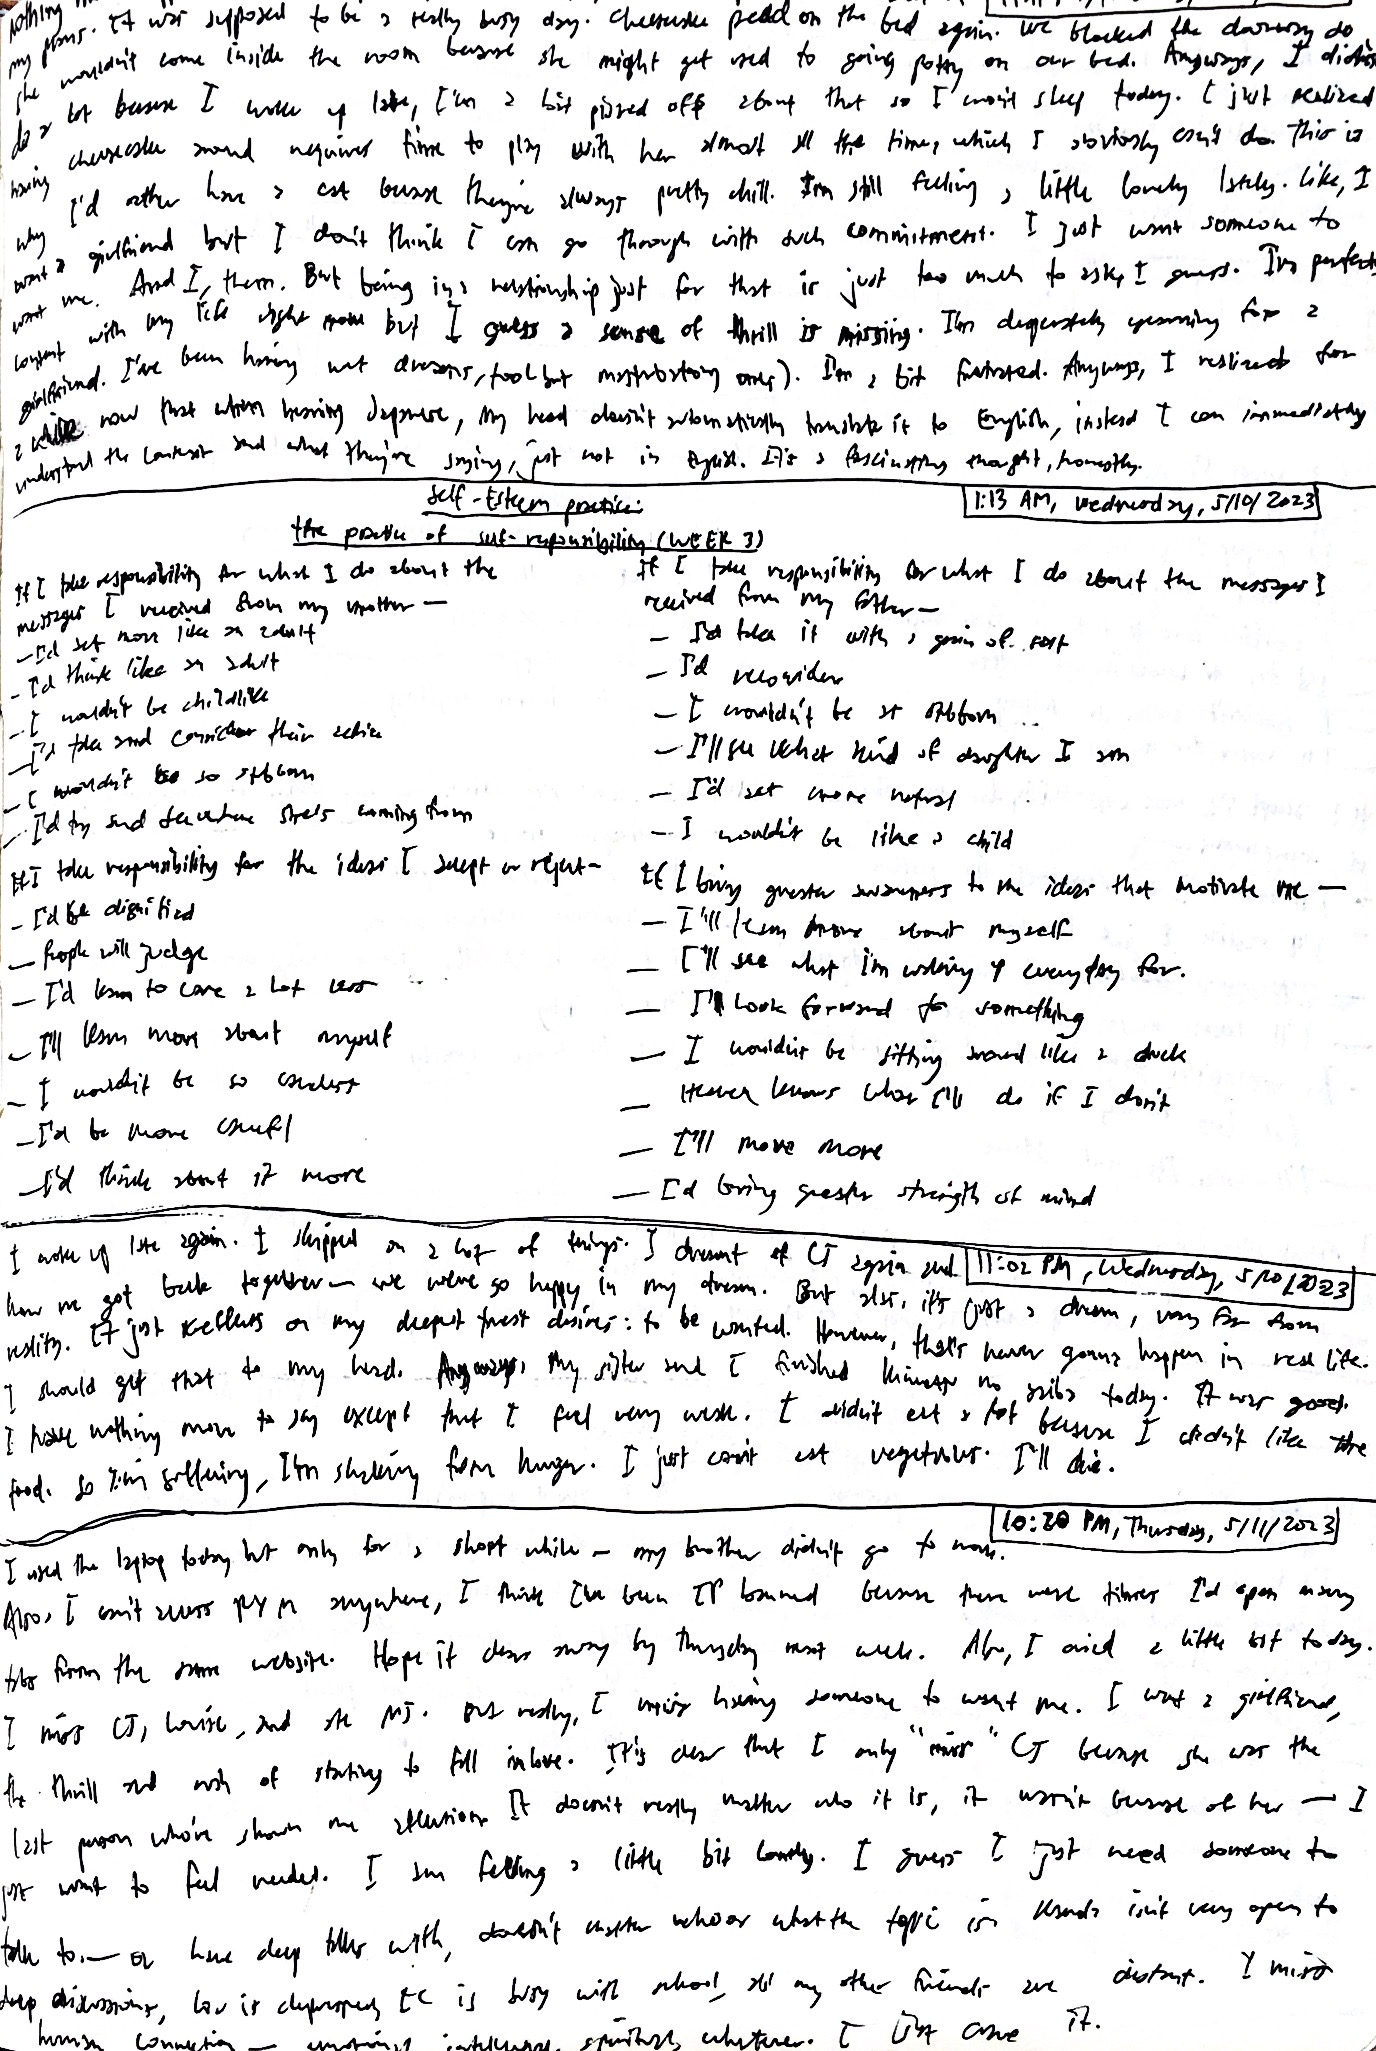 my plans. It was supposed to be a really busy day. Cheesecake peed on the bed again. We blocked the doorway so
she wouldn't come inside the room because she might get used to going potty on our bed. Anyways, I didn't
do a lot because I woke up late, I'm a bit pissed off about that so I won't sleep today. I just realized
having cheesecake around requires time to play with her almost all the time, which I obviously can't do. This is
why I'd rather have a cat because they're always pretty chill. I'm still feeling a little lonely lately. Like, I
want a girlfriend but I don't think I can go through with such commitment. I just want someone to
want me. And I, them. But being in a relationship just for that is just too much to ask, I guess. I'm perfectly
content with my life right now but I guess a sense of thrill is missing. I'm desperately yearning for a
girlfriend. I've been having wet dreams, too (but masturbating ones). I'm a bit frustrated. Anyways, I realized for
a while now that when hearing Japanese, my head doesn't automatically translate it to English, instead I can immediately
understand the context and what they're saying, just not in English. It's a fascinating thought, honestly.
Self-Esteem practice:
1:13 AM, Wednesday, 5/10/2023
the practice of self-responsibility (WEEK 3)
If I take responsibility for what I do about the
messages I received from my mother —
- I'd act more like an adult
- I'd think like an adult
- I wouldn't be childlike
- I'd take and consider their advice
- I wouldn't be so stbborn
- I'd try and see where she's coming from
If I take responsibility for the ideas I accept or reject —
- I'd be dignified
- People will judge
- I'd learn to care a lot less
- I'll learn more about myself
- I wouldn't be so careless
- I'd be more careful
- I'd think about it more
If I take responsibility for what I do about the messages I
received from my father —
- I'd take it with a grain of salt
- I'd reconsider
- I wouldn't be as stbborn
- I'll see what kind of daughter I am
- I'd act more natural
- I wouldn't be like a child
If I bring greater awareness to the ideas that motivate me —
- I'll learn more about myself
- I'll see what I'm waking up everyday for.
- I'll look forward to something
- I wouldn't be sitting around like a duck
- Heaven knows what I'll do if I don't
- I'll move more
- I'd bring greater strength of mind
11:02 PM, Wednesday, 5/10/2023
I woke up late again. I skipped on a lot of things. I dreamt of CJ again and
how we got back together — we were so happy in my dream. But alas, it's just a dream, very far from
reality. It just reflects on my deepest desires: to be wanted. However, that's never gonna happen in real life.
I should get that to my head. Anyways, my sister and I finished Kimi no today. It was good.
I have nothing more to say except that I feel very weak. I didn't eat a lot because I didn't like the
food. So I'm suffering, I'm shaking from hunger. I just can't eat vegetables. I'll die.
10:20 PM, Thursday, 5/11/2023
I used the laptop today but only for a short while — my brother didn't go to work.
Also, I can't access anywhere, I think I've been IP banned because there were times I'd open many
tabs from the same website. Hope it clears away by Thursday next week. Also, I cried a little bit today.
I miss CJ, Louise, and ate MJ. But really, I miss having someone to want me. I want a girlfriend,
the thrill and rush of starting to fall in love. It's clear that I only "miss" CJ because she was the
last person who've shown me affection. It doesn't really matter who it is, it wasn't because of her — I
just want to feel needed. I am feeling a little bit lonely. I guess I just need someone to
talk to — or have deep talks with, doesn't matter who or what the topic is. isn't very open to
deep discussions, is depressed, EC is busy with school, all my other friends are distant. I miss
human connection — emotional, intelligence, spiritual, whatever. I just crave it.